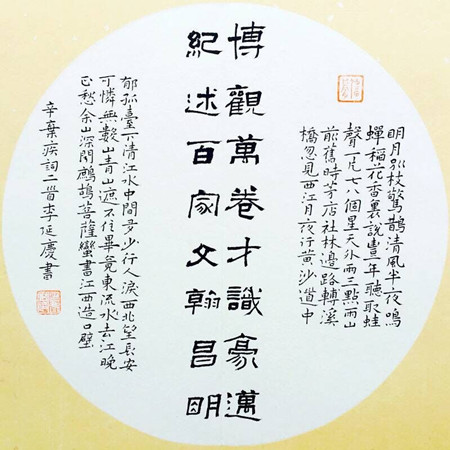 明月別枝驚鵲清風半夜鳴
蟬稻花香裏說豐年聽取蛙
聲一片七八個星天外兩三點雨山
前舊時茅店社林邊路轉溪
橋忽見西江月夜行黄沙道中
博觀萬卷才識豪邁
紀述百家文翰昌明
郁孤臺下清江水中間多少行人淚西北望長安
可憐無數山青山遮不住畢竟東流水去江晚
正愁余山深聞鷓鴣菩薩蠻書江西造口壁
辛棄疾詞二首李延慶書